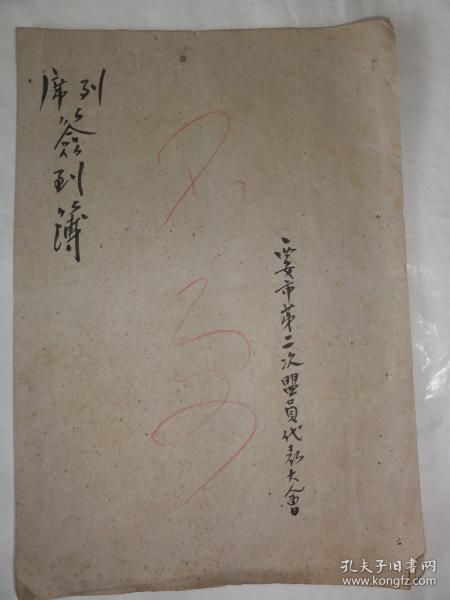 西安市第二次盟員代表大會
列席
簽到簿
不要
孔夫子旧书网
www.kongfz.com